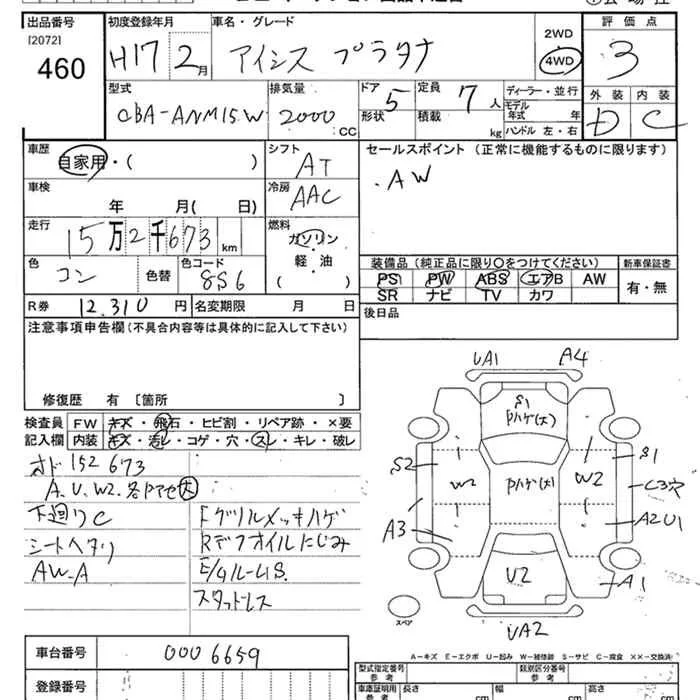 出品番号
[2072]
460
初度登録年月
H17 2月
車名・グレード
アイシス プラタナ
2WD
4WD
評価点
3
型式
CBA-ANM15W
排気量
2000 CC
ドア 形状
5
定員
7 人
積載
kg
ディーラー・並行
モデル年式 年
ハンドル 左・右
外装 内装
D C
車歴
自家用・( )
シフト
AT
セールスポイント (正常に機能するものに限ります)
・AW
車検
年 月( 日)
冷房
AAC
走行
15万2千673 km
燃料
ガソリン
軽・油
( )
色
コン
色替
色コード
8S6
装備品 (純正品に限り○をつけてください)
PS PW ABS エアB AW
SR ナビ TV カワ
新車保証書
有・無
R券 12,310 円
名変期限 月 日
後日品
注意事項申告欄 (不具合内容等は具体的に記入して下さい)
修復歴 有 〔箇所 〕
検査員記入欄
FW キズ・飛石・ヒビ割・リペア跡・×要
内装 キズ・汚レ・コゲ・穴・スレ・キレ・破レ
オド152673
A.U.W2.各ドアセ大
下廻りC
Fグリルメッキハゲ
シートヘタリ
Rデフオイルにじみ
AW-A
E/gルームS.
スタッドレス
UA1
A4
S1
Pハゲ(大)
S2
W2
Pハゲ(大)
W2
S1
C3穴
A3
A2U1
U2
A1
UA2
スペア
A－キズ E－エクボ U－凹み W－補修跡 S－サビ C－腐食 ××－交換済
車台番号
0006659
登録番号
型式指定番号 参考
類別区分番号 参考
車庫証明用 参考
長さ cm
幅 cm
高さ cm